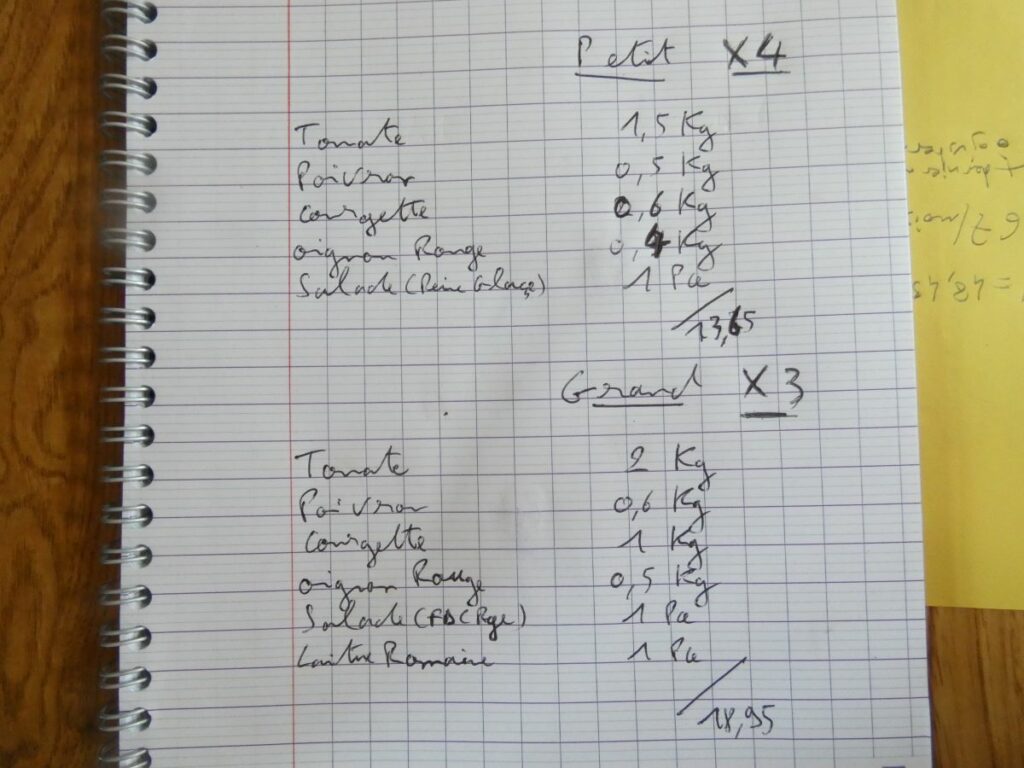 Petit X4
Tomate 1,5 Kg
Poivron 0,5 Kg
Courgette 0,6 Kg
oignon Rouge 0,4 Kg
Salade (Reine Glace) 1 Pce
13,65
Grand X3
Tomate 2 Kg
Poivron 0,6 Kg
Courgette 1 Kg
oignon Rouge 0,5 Kg
Salade (FDC Rge) 1 Pce
Laitue Romaine 1 Pce
18,95
67/mois
= 48,45